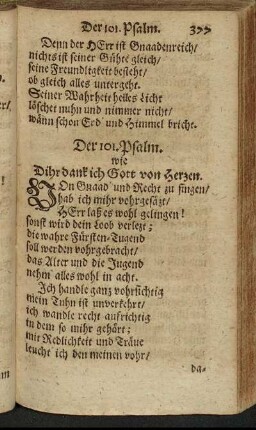 Der 101. Psalm. 377
Denn der HErr ist Gnaadenreich/
nichts ist seiner Gühte gleich/
seine Freundligkeit besteht/
ob gleich alles untergeht.
Seiner Wahrheit helles Licht
löschet nuhn und nimmer nicht/
wänn schon Erd und Himmel bricht.
Der 101. Psalm.
wie
Dihr dank ich Gott von Herzen.
VOn Gnaad und Recht zu singen/
hab ich mihr vohrgesäzt/
HErr laß es wohl gelingen!
sonst wird dein Loob verlezt;
die wahre Fürsten-Tugend
soll werden vohrgebracht/
das Alter und die Jugend
nehm alles wohl in acht.
Ich handle ganz vohrsichtig
mein Tuhn ist unverkehrt/
ich wandle recht aufrichtig
in dem so mihr gehört;
mit Redlichkeit und Träue
leucht ich den meinen vohr/
da-